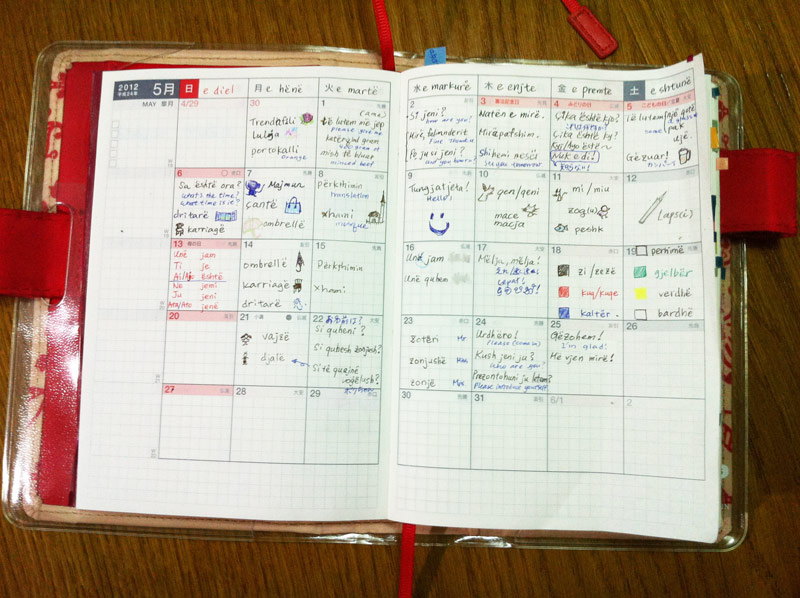 2012
平成24年
5月
日 e diel
月 e hënë
火 e martë
水 e markurë
木 e enjte
金 e premte
土 e shtunë
MAY 皐月
4/29
30
Trendafili
lulja
portokalli
orange
1
të lutem një jep
please give me
katërqind gram
400 gram of
mish të bluar
minced beef
2
Si jeni?
how are you?
Mirë, faleminderit
Fine thank u
Po, ju si jeni?
and you hours?
3 憲法記念日
Natën e mirë.
Mirëpafshim.
Shihemi nesër
see you tomorrow
4 みどりの日
Çika është kjo?
Çika është ky?
Kjo/Ajo është~
Nuk e di!
知らない!
5 こどもの日/立夏
Gëzuar!
6
Sa është ora?
What's the time?
What time is it?
dritarë
karriagë
7
Majmun
çantë
ombrellë
8
Përkthimin
translation
xhami
mosque
9
Tungjatjeta!
Hello!
10
qen/qeni
mace
macja
11
mi / miu
zog(u)
peshk
12
(lapsi)
13 母の日
Unë jam
Ti je
Ai/Ajo është
Ne jemi
Ju jeni
Ata/Ato janë
14
ombrellë
karriagë
dritarë
15
Përkthimin
xhami
16
Unë jam
Unë quhem
17
Mëlja, mëlja!
18
zi / zezë
kuq/kuqe
kaltër
19
përhimë
gjelbër
verdhë
bardhë
20
21 小満
vajsë
djalë
22
Si quheni?
Si quhesh zonjosh?
Si të quajnë
vogëlush?
23
zotëri Mr
zonjushë Miss
zonjë Mrs
24
Urdhëro!
Please (come in)
Kush jeni ju?
who are you?
Prezantohuni ju lutem?
Please introduce yourself.
25
Gëzohem!
I'm glad!
Me vjen mirë!
26
27
28
29
30
31
6/1
2